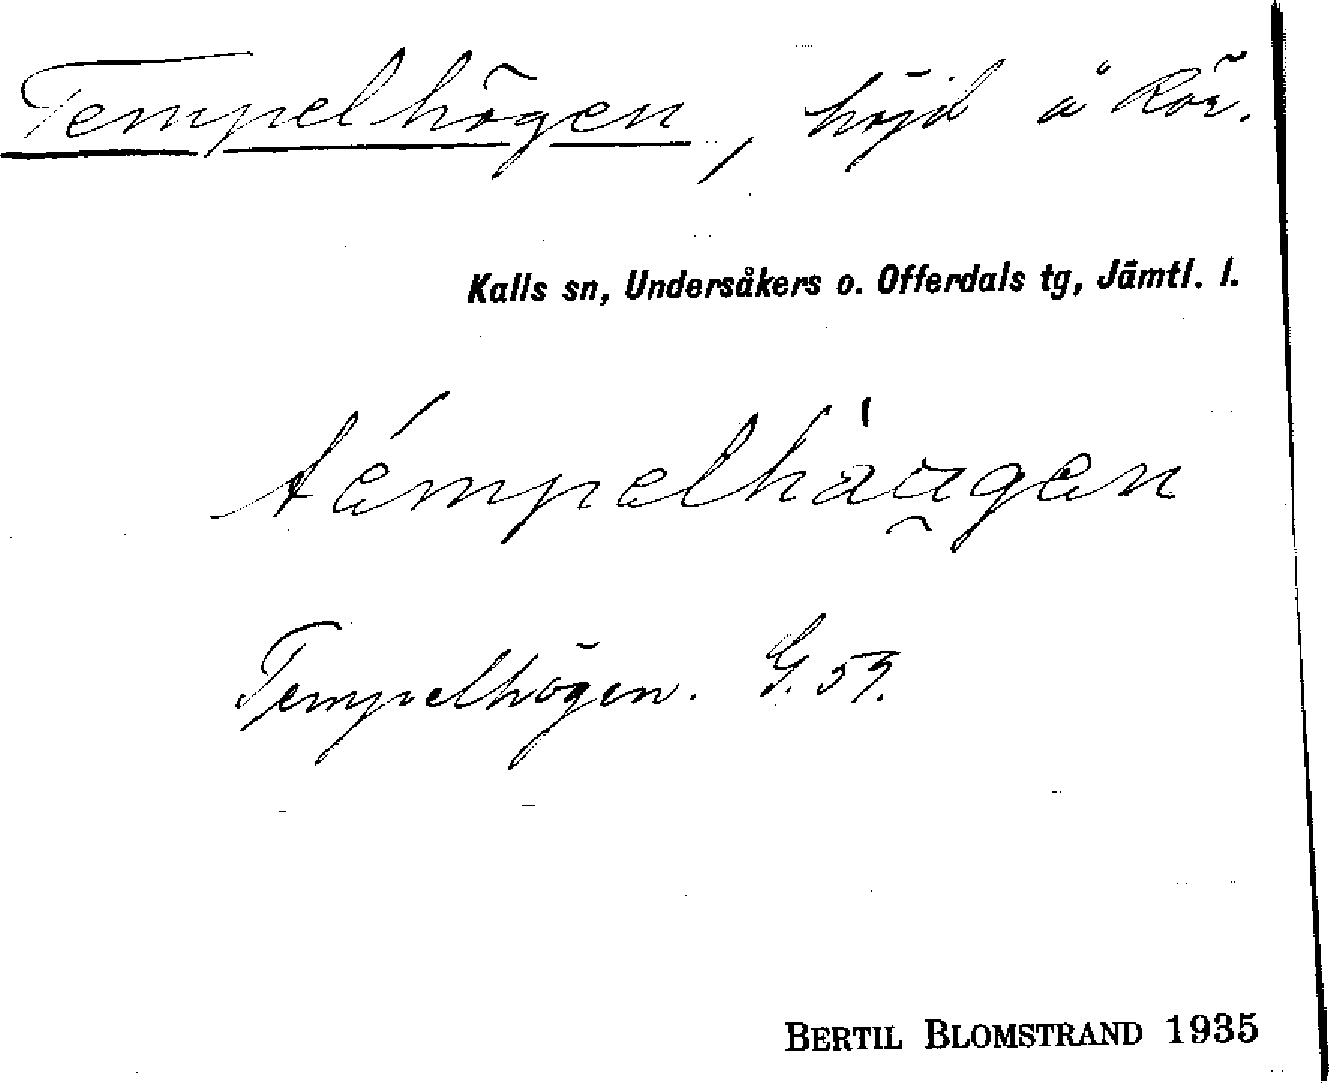 Tempelhögen, höjd å Rör.
Kalls sn, Undersåkers o. Offerdals tg, Jämtl. l.
témpelhàu̯gen
Tempelhögen. G. 59.
BERTIL BLOMSTRAND 1935